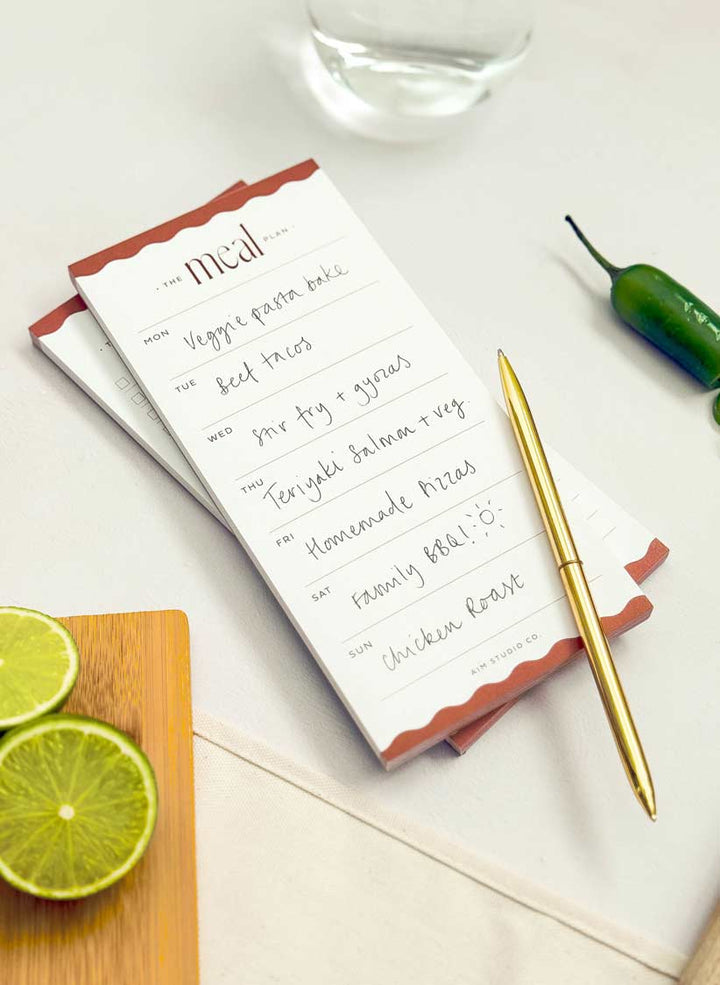 · THE meal PLAN ·
MON Veggie pasta bake
TUE Beef tacos
WED Stir fry + gyozas
THU Teriyaki Salmon + veg.
FRI Homemade Pizzas
SAT Family BBQ!
SUN Chicken Roast
AIM STUDIO CO.
· T